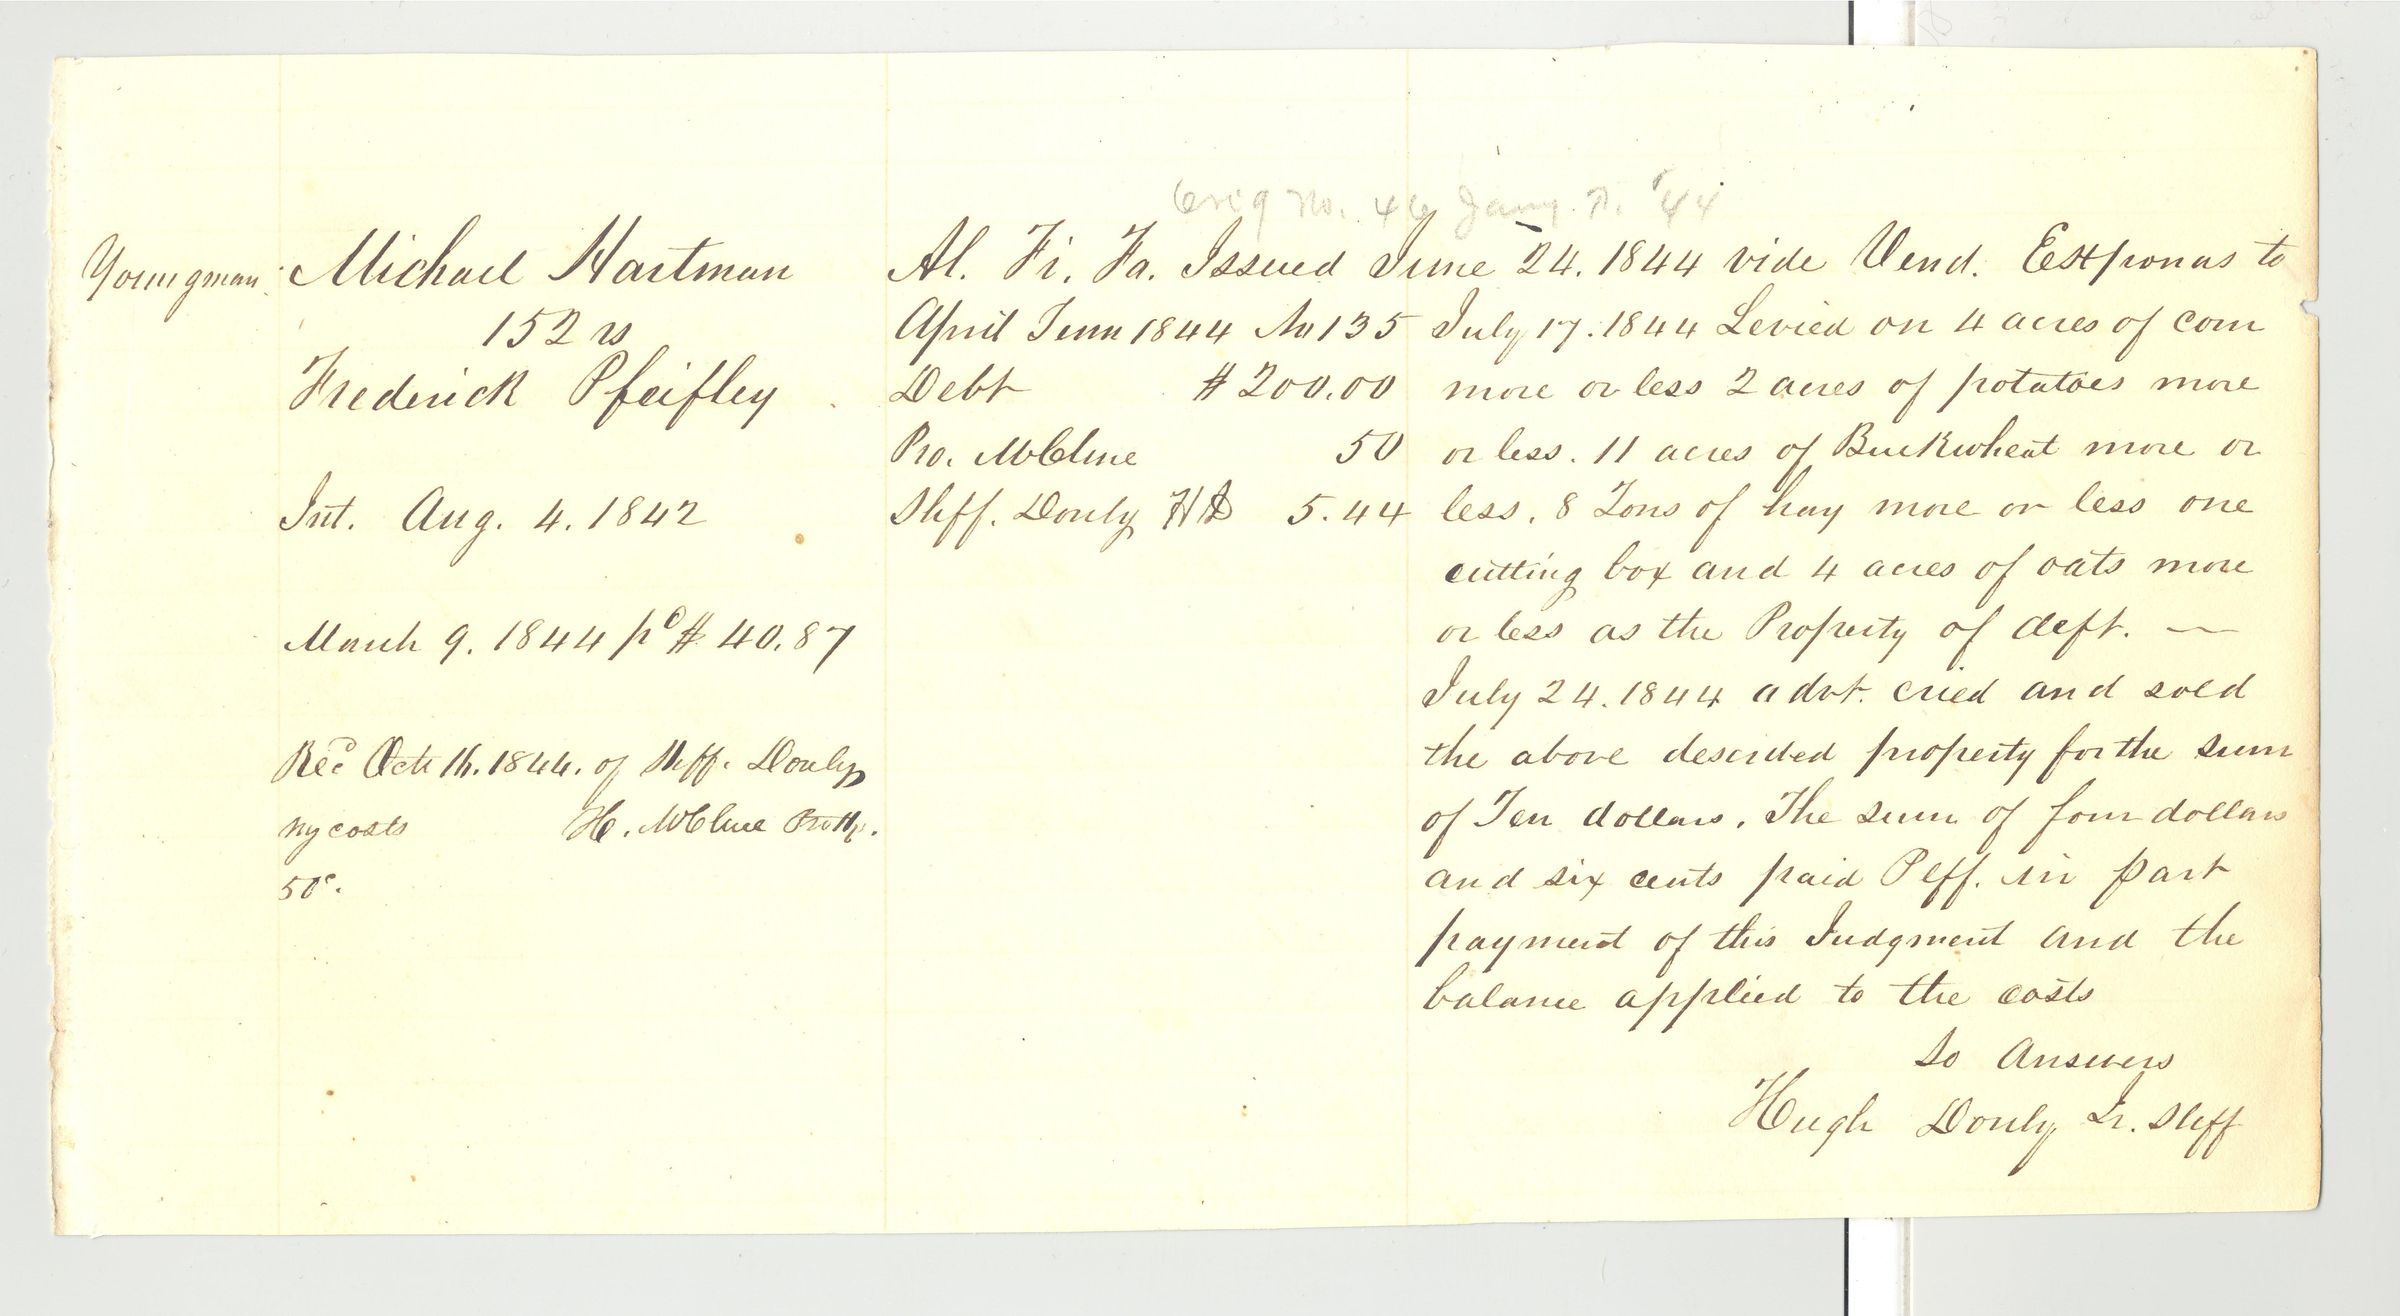 Orig No. 46 Jany. T. '44
Youngman.
Michael Hartman
152 vs
Frederick Pfeifley
Int. Aug. 4. 1842
March 9. 1844 pd $ 40.87
Recd Oct 16. 1844. of Shff. Donly
my costs H. McClure Prothy.
50c.
Al. Fi. Fa. Issued June 24. 1844 vide Vend. Exponas to
April Term 1844 No 135
Debt $ 200.00
Pro. McClure 50
Shff. Donly HD 5.44
July 17. 1844 Levied on 4 acres of corn
more or less 2 acres of potatoes more
or less. 11 acres of Buckwheat more or
less. 8 Tons of hay more or less one
cutting box and 4 acres of oats more
or less as the Property of deft. —
July 24. 1844 advt. cried and sold
the above described property for the sum
of Ten dollars. The sum of four dollars
and six cents paid Plff. in part
payment of this Judgment and the
balance applied to the costs
So Answers
Hugh Donly Jr. Shff